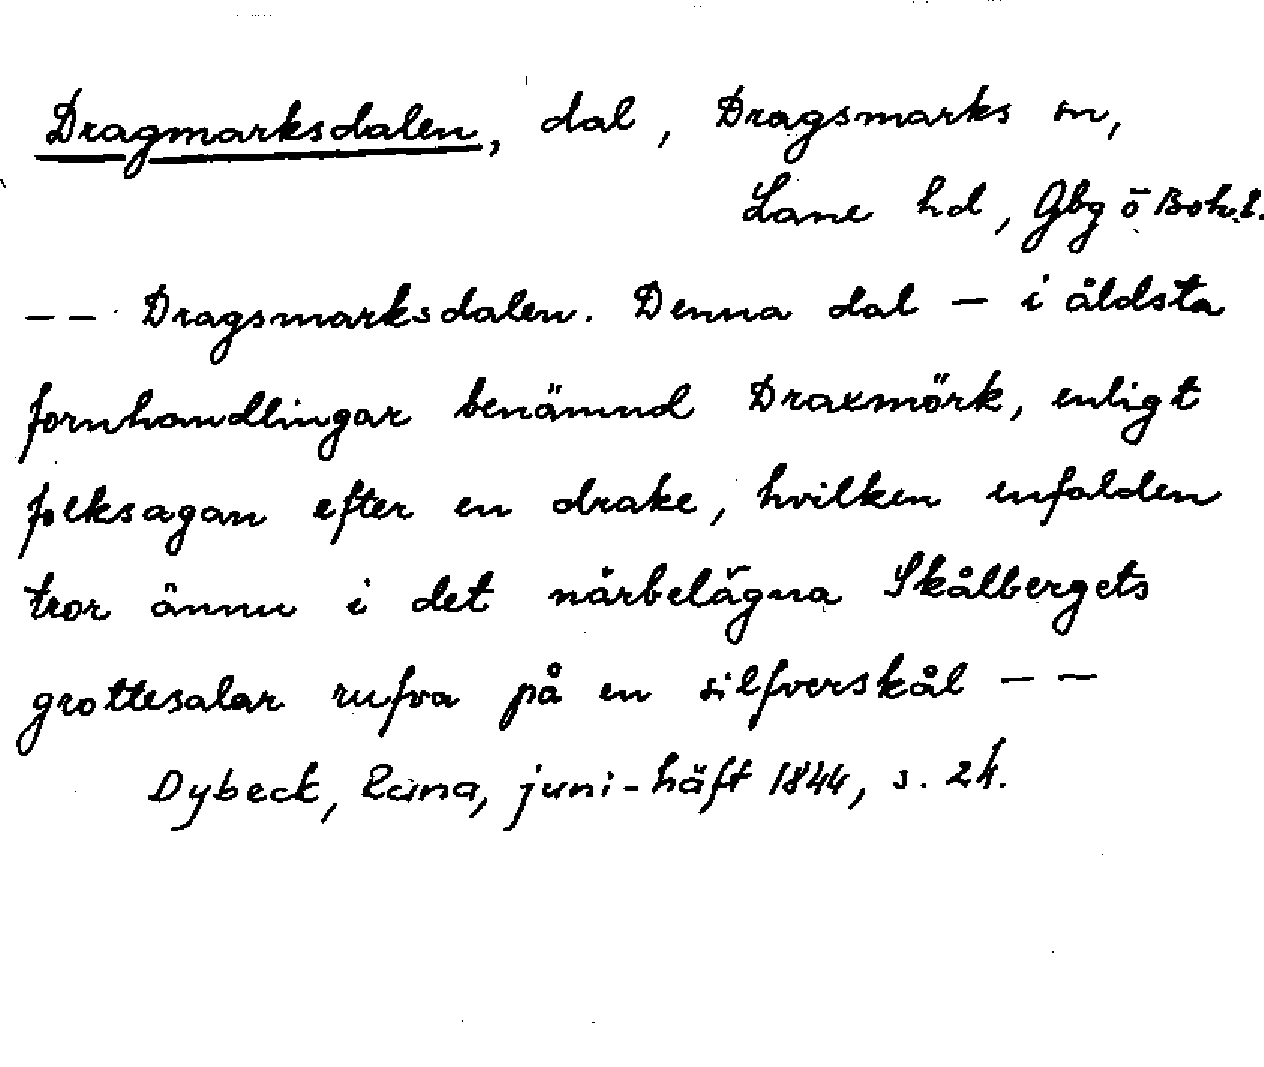 Dragmarksdalen, dal, Dragsmarks sn,
Lane hd, Gbg o Bohl.
-- Dragsmarksdalen. Denna dal - i äldsta
fornhandlingar benämnd Draxmörk, enligt
folksagan efter en drake, hvilken enfalden
tror ännu i det närbelägna Skålbergets
grottesalar rufva på en silfverskål --
Dybeck, Runa, juni-häft 1844, s. 24.